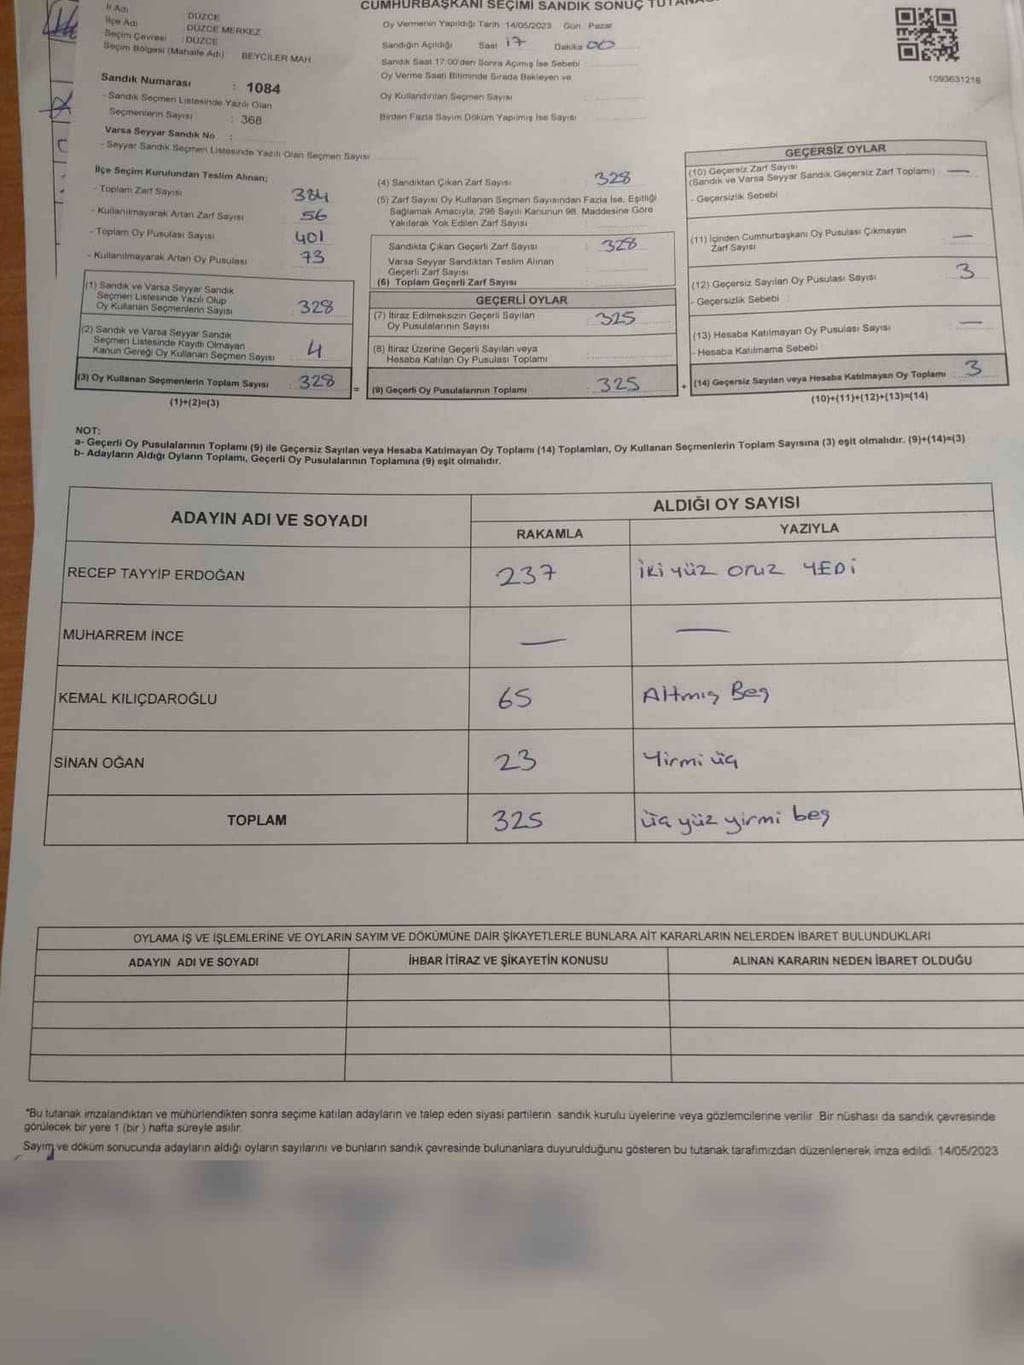 CUMHURBAŞKANI SEÇİMİ SANDIK SONUÇ TUTANAĞI
İl Adı DÜZCE
İlçe Adı DÜZCE MERKEZ
Seçim Çevresi : DÜZCE
Seçim Bölgesi (Mahalle Adı) BEYCİLER MAH
Sandık Numarası : 1084
- Sandık Seçmen Listesinde Yazılı Olan
Seçmenlerin Sayısı : 368
Varsa Seyyar Sandık No :
- Seyyar Sandık Seçmen Listesinde Yazılı Olan Seçmen Sayısı
Oy Vermenin Yapıldığı Tarih 14/05/2023 Gün Pazar
Sandığın Açıldığı Saat 17 Dakika 00
Sandık Saat 17:00'den Sonra Açımış İse Sebebi
Oy Verme Saati Bitiminde Sırada Bekleyen ve
Oy Kullandırılan Seçmen Sayısı
Birden Fazla Sayım Döküm Yapılmış İse Sayısı
1093631218
İlçe Seçim Kurulundan Teslim Alınan;
- Toplam Zarf Sayısı 384
- Kullanılmayarak Artan Zarf Sayısı 56
- Toplam Oy Pusulası Sayısı 401
- Kullanılmayarak Artan Oy Pusulası 73
(1) Sandık ve Varsa Seyyar Sandık
Seçmen Listesinde Yazılı Olup
Oy Kullanan Seçmenlerin Sayısı 328
(2) Sandık ve Varsa Seyyar Sandık
Seçmen Listesinde Kayıtlı Olmayan
Kanun Gereği Oy Kullanan Seçmen Sayısı 4
(3) Oy Kullanan Seçmenlerin Toplam Sayısı : 328
(1)+(2)=(3)
(4) Sandıktan Çıkan Zarf Sayısı 328
(5) Zarf Sayısı Oy Kullanan Seçmen Sayısından Fazla İse, Eşitliği
Sağlamak Amacıyla, 298 Sayılı Kanunun 98. Maddesine Göre
Yakılarak Yok Edilen Zarf Sayısı
Sandıkta Çıkan Geçerli Zarf Sayısı : 328
Varsa Seyyar Sandıktan Teslim Alınan
Geçerli Zarf Sayısı
(6) Toplam Geçerli Zarf Sayısı
GEÇERLİ OYLAR
(7) İtiraz Edilmeksizin Geçerli Sayılan
Oy Pusulalarının Sayısı : 325
(8) İtiraz Üzerine Geçerli Sayılan veya
Hesaba Katılan Oy Pusulası Toplamı
= (9) Geçerli Oy Pusulalarının Toplamı : 325
GEÇERSİZ OYLAR
(10) Geçersiz Zarf Sayısı
(Sandık ve Varsa Seyyar Sandık Geçersiz Zarf Toplamı) —
- Geçersizlik Sebebi
(11) İçinden Cumhurbaşkanı Oy Pusulası Çıkmayan
Zarf Sayısı —
(12) Geçersiz Sayılan Oy Pusulası Sayısı 3
- Geçersizlik Sebebi :
(13) Hesaba Katılmayan Oy Pusulası Sayısı —
- Hesaba Katılmama Sebebi
+ (14) Geçersiz Sayılan veya Hesaba Katılmayan Oy Toplamı 3
(10)+(11)+(12)+(13)=(14)
NOT:
a- Geçerli Oy Pusulalarının Toplamı (9) ile Geçersiz Sayılan veya Hesaba Katılmayan Oy Toplamı (14) Toplamları, Oy Kullanan Seçmenlerin Toplam Sayısına (3) eşit olmalıdır. (9)+(14)=(3)
b- Adayların Aldığı Oyların Toplamı, Geçerli Oy Pusulalarının Toplamına (9) eşit olmalıdır.
ADAYIN ADI VE SOYADI ALDIĞI OY SAYISI
RAKAMLA YAZIYLA
RECEP TAYYİP ERDOĞAN 237 İki yüz oruz YEDİ
MUHARREM İNCE — —
KEMAL KILIÇDAROĞLU 65 Altmış Beş
SİNAN OĞAN 23 Yirmi üç
TOPLAM 325 üç yüz yirmi beş
OYLAMA İŞ VE İŞLEMLERİNE VE OYLARIN SAYIM VE DÖKÜMÜNE DAİR ŞİKAYETLERLE BUNLARA AİT KARARLARIN NELERDEN İBARET BULUNDUKLARI
ADAYIN ADI VE SOYADI İHBAR İTİRAZ VE ŞİKAYETİN KONUSU ALINAN KARARIN NEDEN İBARET OLDUĞU
*Bu tutanak imzalandıktan ve mühürlendikten sonra seçime katılan adayların ve talep eden siyasi partilerin sandık kurulu üyelerine veya gözlemcilerine verilir Bir nüshası da sandık çevresinde
görülecek bir yere 1 (bir ) hafta süreyle asılır.
Sayım ve döküm sonucunda adayların aldığı oyların sayılarını ve bunların sandık çevresinde bulunanlara duyurulduğunu gösteren bu tutanak tarafımızdan düzenlenerek imza edildi. 14/05/2023